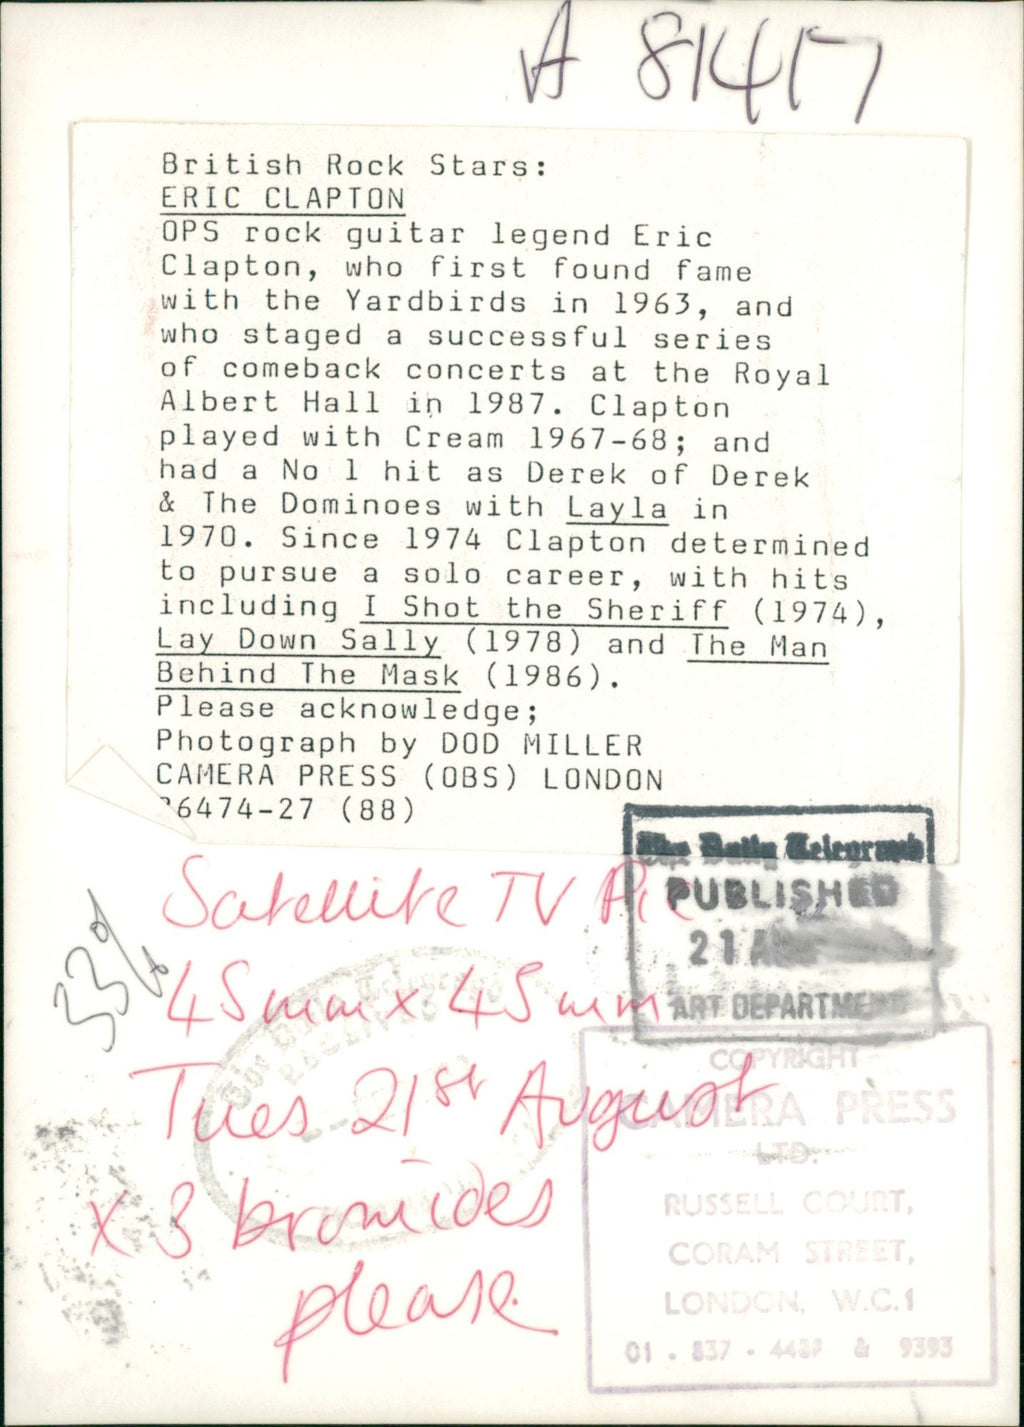 A 81417
British Rock Stars:
ERIC CLAPTON
OPS rock guitar legend Eric
Clapton, who first found fame
with the Yardbirds in 1963, and
who staged a successful series
of comeback concerts at the Royal
Albert Hall in 1987. Clapton
played with Cream 1967-68; and
had a No 1 hit as Derek of Derek
& The Dominoes with Layla in
1970. Since 1974 Clapton determined
to pursue a solo career, with hits
including I Shot the Sheriff (1974),
Lay Down Sally (1978) and The Man
Behind The Mask (1986).
Please acknowledge;
Photograph by DOD MILLER
CAMERA PRESS (OBS) LONDON
6474-27 (88)
The Daily Telegraph
PUBLISHED
21 A
ART DEPARTMENT
Satellite TV Pic
45mm x 45mm
Tues 21st August
x 3 bromides
please
33%
COPYRIGHT
CAMERA PRESS
LTD.
RUSSELL COURT,
CORAM STREET,
LONDON, W.C.1
01 - 837 - & 9393